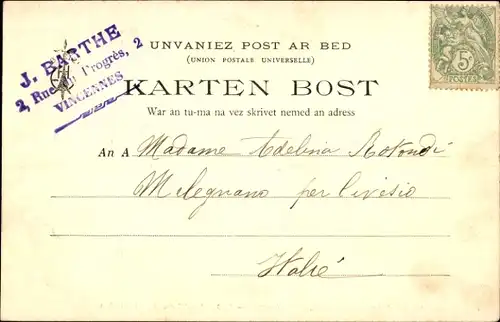 J. BARTHE
2, Rue du Progrès, 2
VINCENNES
UNVANIEZ POST AR BED
(UNION POSTALE UNIVERSELLE)
KARTEN BOST
War an tu-ma na vez skrivet nemed an adress
An A Madame Adelina Rotondi
Melegnano per Livesio
Italie
5
POSTES